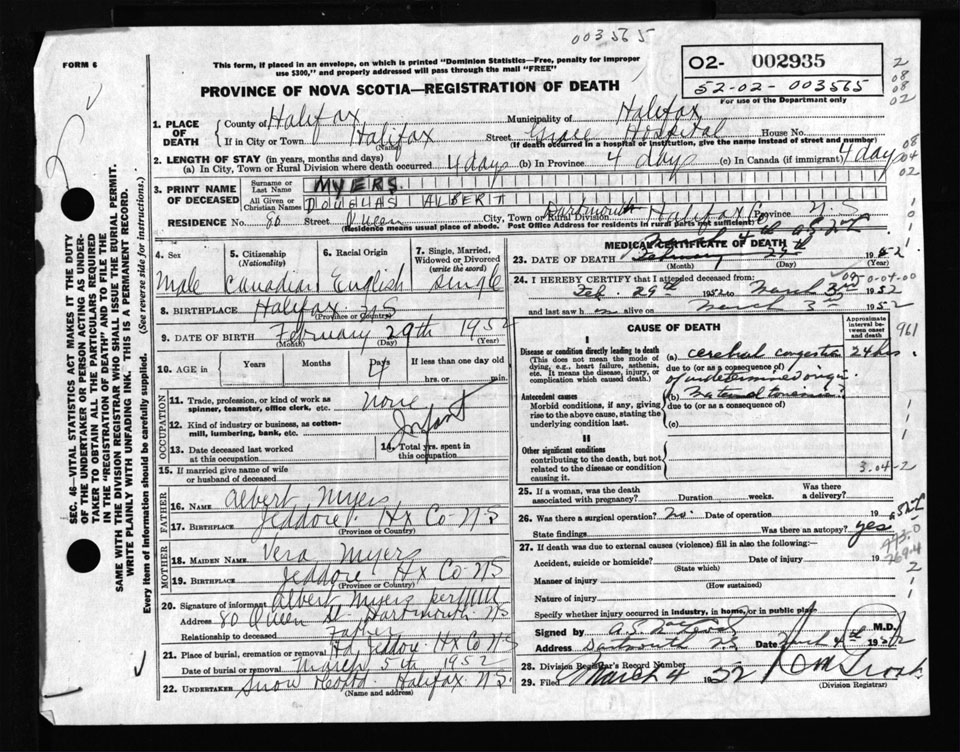 003565
FORM 6
This form, if placed in an envelope, on which is printed "Dominion Statistics—Free, penalty for improper
use $300," and properly addressed will pass through the mail "FREE"
02- 002935
52-02-003565
For use of the Department only
2
08
08
02
PROVINCE OF NOVA SCOTIA—REGISTRATION OF DEATH
1. PLACE OF DEATH
County of Halifax Municipality of Halifax
If in City or Town Halifax Street Grace Hospital House No.
(Name) (If death occurred in a hospital or institution, give the name instead of street and number)
2. LENGTH OF STAY (in years, months and days)
(a) In City, Town or Rural Division where death occurred 4 days (b) In Province 4 days (c) In Canada (if immigrant) 4 days
08
04
02
3. PRINT NAME OF DECEASED
Surname or Last Name MYERS
All Given or Christian Names DOUGLAS ALBERT
RESIDENCE No. 80 Street Queen City, Town or Rural Division Dartmouth Halifax Co N.S
(Residence means usual place of abode. Post Office Address for residents in rural parts not sufficient)
4. Sex
Male
5. Citizenship (Nationality)
Canadian
6. Racial Origin
English
7. Single, Married, Widowed or Divorced (write the word)
Single
8. BIRTHPLACE Halifax N.S
(Province or Country)
9. DATE OF BIRTH February 29th 1952
(Month) (Day) (Year)
10. AGE in Years Months Days If less than one day old
hrs. or min.
OCCUPATION
11. Trade, profession, or kind of work as spinner, teamster, office clerk, etc. none
12. Kind of industry or business, as cotton-mill, lumbering, bank, etc. Infant
13. Date deceased last worked at this occupation
14. Total yrs. spent in this occupation
15. If married give name of wife or husband of deceased
FATHER
16. NAME Albert Myers
17. BIRTHPLACE Jeddore Hx Co N-S
(Province or Country)
MOTHER
18. MAIDEN NAME Vera Myers
19. BIRTHPLACE Jeddore Hx Co N-S
(Province or Country)
20. Signature of informant Albert Myers per
Address 80 Queen St Dartmouth NS
Relationship to deceased Father
21. Place of burial, cremation or removal Hd Jeddore Hx Co N-S
Date of burial or removal March 5th 1952
22. UNDERTAKER Snow Halifax N.S.
(Name and address)
MEDICAL CERTIFICATE OF DEATH
March 4th
23. DATE OF DEATH February 29th 1952
(Month) (Day) (Year)
24. I HEREBY CERTIFY that I attended deceased from:
Feb. 29th 1952 to March 3rd 1952
and last saw h m alive on March 3rd 1952
CAUSE OF DEATH
Approximate interval between onset and death
961
I
Disease or condition directly leading to death
(This does not mean the mode of dying, e.g., heart failure, asthenia, etc. It means the disease, injury, or complication which caused death.)
(a) cerebral congestion 24 hrs
due to (or as a consequence of)
of undetermined origin.
Antecedent causes
Morbid conditions, if any, giving rise to the above cause, stating the underlying condition last.
(b) Maternal toxemia?
due to (or as a consequence of)
(c)
II
Other significant conditions
contributing to the death, but not related to the disease or condition causing it.
3.04-2
25. If a woman, was the death associated with pregnancy? Duration weeks. Was there a delivery?
26. Was there a surgical operation? no. Date of operation 19
State findings Was there an autopsy? yes
27. If death was due to external causes (violence) fill in also the following:
Accident, suicide or homicide? Date of injury 19
(State which)
Manner of injury
(How sustained)
Nature of injury
Specify whether injury occurred in industry, in home, or in public place
769.4
2
Signed by M.D.
Address Dartmouth N.S Date March 4th 1952
28. Division Registrar's Record Number
29. Filed March 4 1952
(Division Registrar)
SEC. 46—VITAL STATISTICS ACT MAKES IT THE DUTY
OF THE UNDERTAKER OR PERSON ACTING AS UNDERTAKER
TO OBTAIN ALL THE PARTICULARS REQUIRED
IN THE "REGISTRATION OF DEATH" AND TO FILE THE
SAME WITH THE DIVISION REGISTRAR WHO SHALL ISSUE THE BURIAL PERMIT.
WRITE PLAINLY WITH UNFADING INK. THIS IS A PERMANENT RECORD.
Every item of information should be carefully supplied. (See reverse side for instructions.)